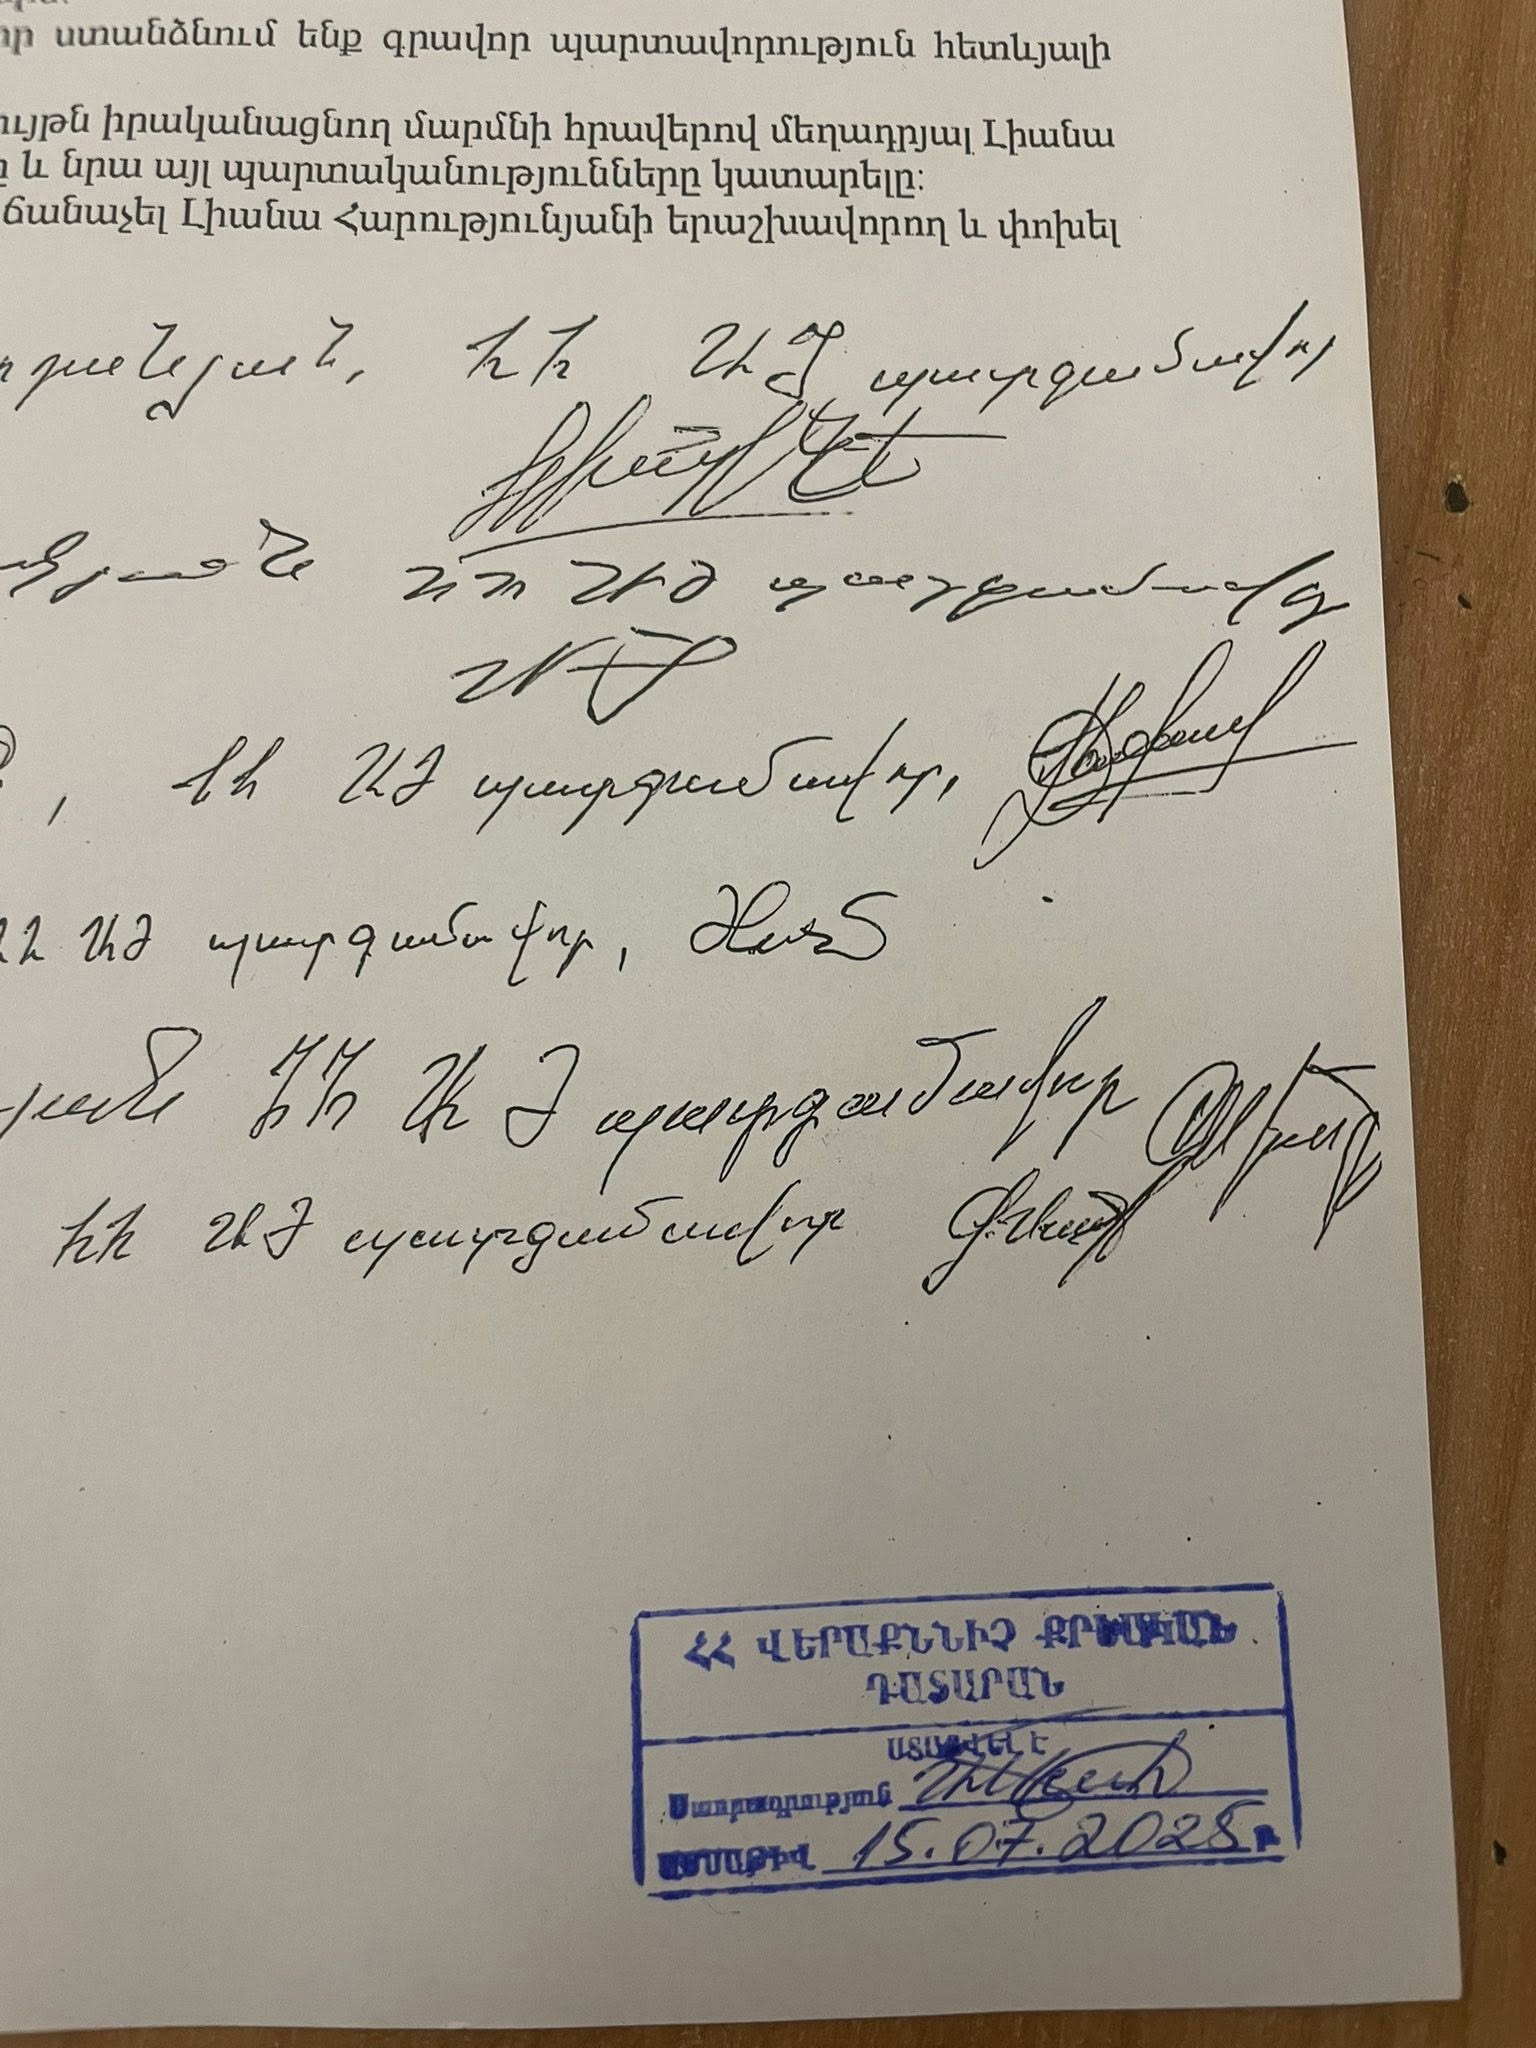 որ ստանձնում ենք գրավոր պարտավորություն հետևյալի
ույթն իրականացնող մարմնի հրավերով մեղադրյալ Լիանա
և նրա այլ պարտականությունները կատարելը։
ճանաչել Լիանա Հարությունյանի երաշխավորող և փոխել
ՀՀ ԱԺ պատգամավոր
ՀՀ ԱԺ պատգամավոր
, ՀՀ ԱԺ պատգամավոր,
ՀՀ ԱԺ պատգամավոր,
յան ՀՀ ԱԺ պատգամավոր
ՀՀ ԱԺ պատգամավոր
ՀՀ ՎԵՐԱՔՆՆԻՉ ՔՐԵԱԿԱՆ
ԴԱՏԱՐԱՆ
ՍՏԱՑՎԵԼ Է
Ստորագրություն
ԱՄՍԱԹԻՎ 15.07.2025 թ